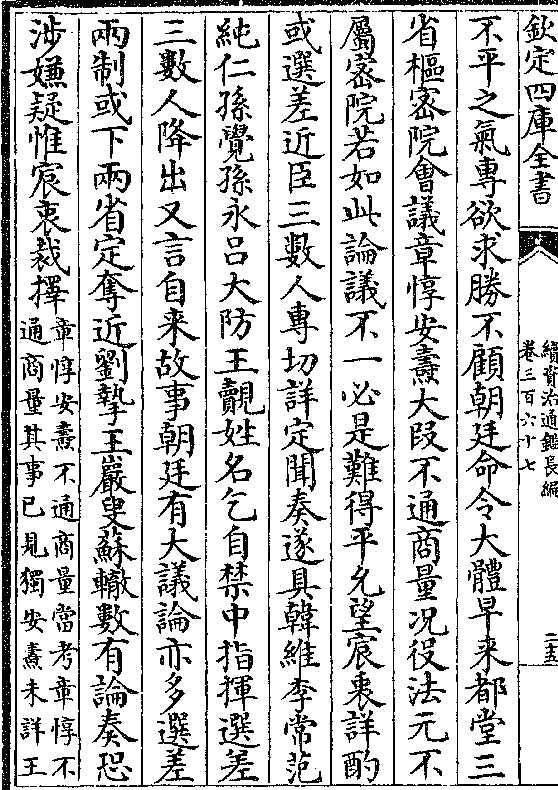 欽定四庫全書
續資治通鑑長編
卷三百六十七
二十五
不平之氣專欲求勝不顧朝廷命令大體早来都堂三
省樞宻院會議章惇安燾大段不通商量况役法元不
屬宻院若如此論議不一必是難得平允望宸衷詳酌
或選差近臣三數人專切詳定聞奏遂具韓維李常范
純仁孫覺孫永吕大防王覿姓名乞自禁中指揮選差
三數人降出又言自来故事朝廷有大議論亦多選差
兩制或下兩省定奪近劉摯王巖叟蘇轍數有論奏恐
涉嫌疑惟宸衷裁擇
章惇安燾不通商量當考章惇不
通商量其事已見獨安燾未詳王